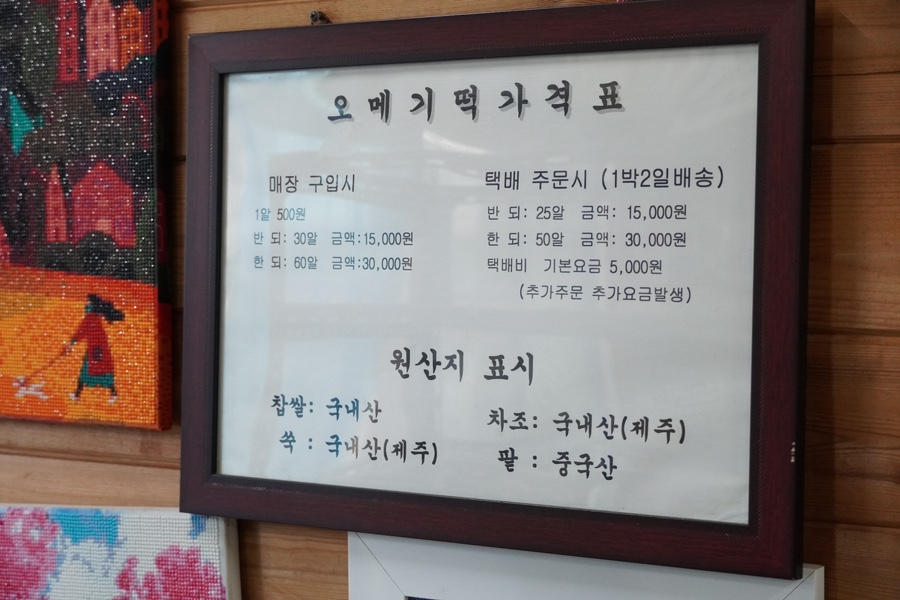 오메기떡가격표
매장 구입시
1알 500원
반 되: 30알 금액:15,000원
한 되: 60알 금액:30,000원
택배 주문시 (1박2일배송)
반 되: 25알 금액: 15,000원
한 되: 50알 금액: 30,000원
택배비 기본요금 5,000원
(추가주문 추가요금발생)
원산지 표시
찹쌀: 국내산
쑥 : 국내산(제주)
차조: 국내산(제주)
팥 : 중국산